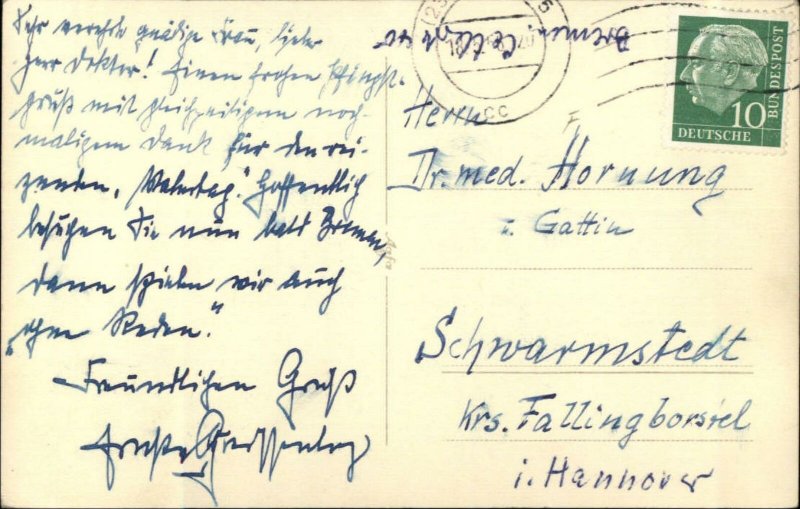 Sehr verehrte gnädige Frau, lieber
Herr Doktor! Einen frohen Pfingst-
gruß mit gleichzeitigem noch-
maligem Dank für den rei-
zenden "Vatertag". Hoffentlich
besuchen Sie nun bald Bremen,
dann spielen wir auch
"ohne Reden."
Freundlichen Gruß
Bremen
10
DEUTSCHE
BUNDESPOST
Herrn
Dr. med. Hornung
u. Gattin
Schwarmstedt
Krs. Fallingborstel
i. Hannover